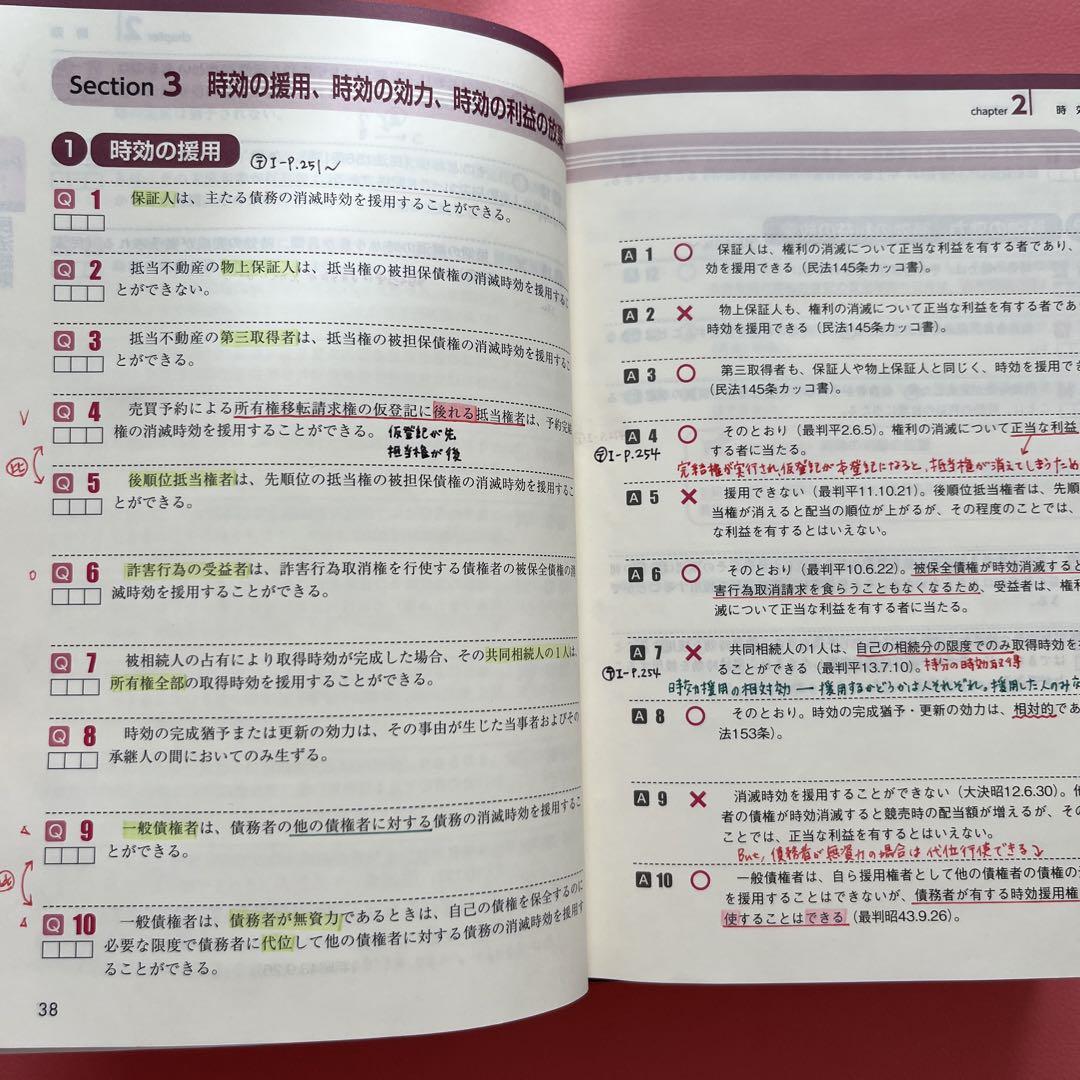 Section 3 時効の援用、時効の効力、時効の利益の放棄
1 時効の援用 ㋢I-P.251〜
Q 1 保証人は、主たる債務の消滅時効を援用することができる。
Q 2 抵当不動産の物上保証人は、抵当権の被担保債権の消滅時効を援用するこ
とができない。
Q 3 抵当不動産の第三取得者は、抵当権の被担保債権の消滅時効を援用するこ
とができる。
V
Q 4 売買予約による所有権移転請求権の仮登記に後れる抵当権者は、予約完結
権の消滅時効を援用することができる。 仮登記が先
抵当権が後
比
Q 5 後順位抵当権者は、先順位の抵当権の被担保債権の消滅時効を援用するこ
とができる。
Q 6 詐害行為の受益者は、詐害行為取消権を行使する債権者の被保全債権の消
滅時効を援用することができる。
Q 7 被相続人の占有により取得時効が完成した場合、その共同相続人の1人は、
所有権全部の取得時効を援用することができる。
Q 8 時効の完成猶予または更新の効力は、その事由が生じた当事者およびその
承継人の間においてのみ生ずる。
Q 9 一般債権者は、債務者の他の債権者に対する債務の消滅時効を援用するこ
とができる。
比
Q 10 一般債権者は、債務者が無資力であるときは、自己の債権を保全するのに
必要な限度で債務者に代位して他の債権者に対する債務の消滅時効を援用す
ることができる。
38
chapter 2 時
A 1 ○ 保証人は、権利の消滅について正当な利益を有する者であり、
効を援用できる（民法145条カッコ書）。
A 2 × 物上保証人も、権利の消滅について正当な利益を有する者であ
時効を援用できる（民法145条カッコ書）。
A 3 ○ 第三取得者も、保証人や物上保証人と同じく、時効を援用でき
（民法145条カッコ書）。
A 4 ○ そのとおり（最判平2.6.5）。権利の消滅について正当な利益
する者に当たる。
㋢I-P.254
完結権が実行され仮登記が本登記になると、抵当権が消えてしまうため
A 5 × 援用できない（最判平11.10.21）。後順位抵当権者は、先順
当権が消えると配当の順位が上がるが、その程度のことでは、
な利益を有するとはいえない。
A 6 ○ そのとおり（最判平10.6.22）。被保全債権が時効消滅すると
害行為取消請求を食らうこともなくなるため、受益者は、権
滅について正当な利益を有する者に当たる。
A 7 × 共同相続人の1人は、自己の相続分の限度でのみ取得時効を
ることができる（最判平13.7.10）。持分の時効取得
㋢I-P.254
時効援用の相対効 ― 援用するかどうかは人それぞれ。援用した人のみ
A 8 ○ そのとおり。時効の完成猶予・更新の効力は、相対的であ
法153条）。
A 9 × 消滅時効を援用することができない（大決昭12.6.30）。他
者の債権が時効消滅すると競売時の配当額が増えるが、その
ことでは、正当な利益を有するとはいえない。
But, 債務者が無資力の場合は代位行使できる↓
A 10 ○ 一般債権者は、自ら援用権者として他の債権者の債権の
を援用することはできないが、債務者が有する時効援用権
使することはできる（最判昭43.9.26）。